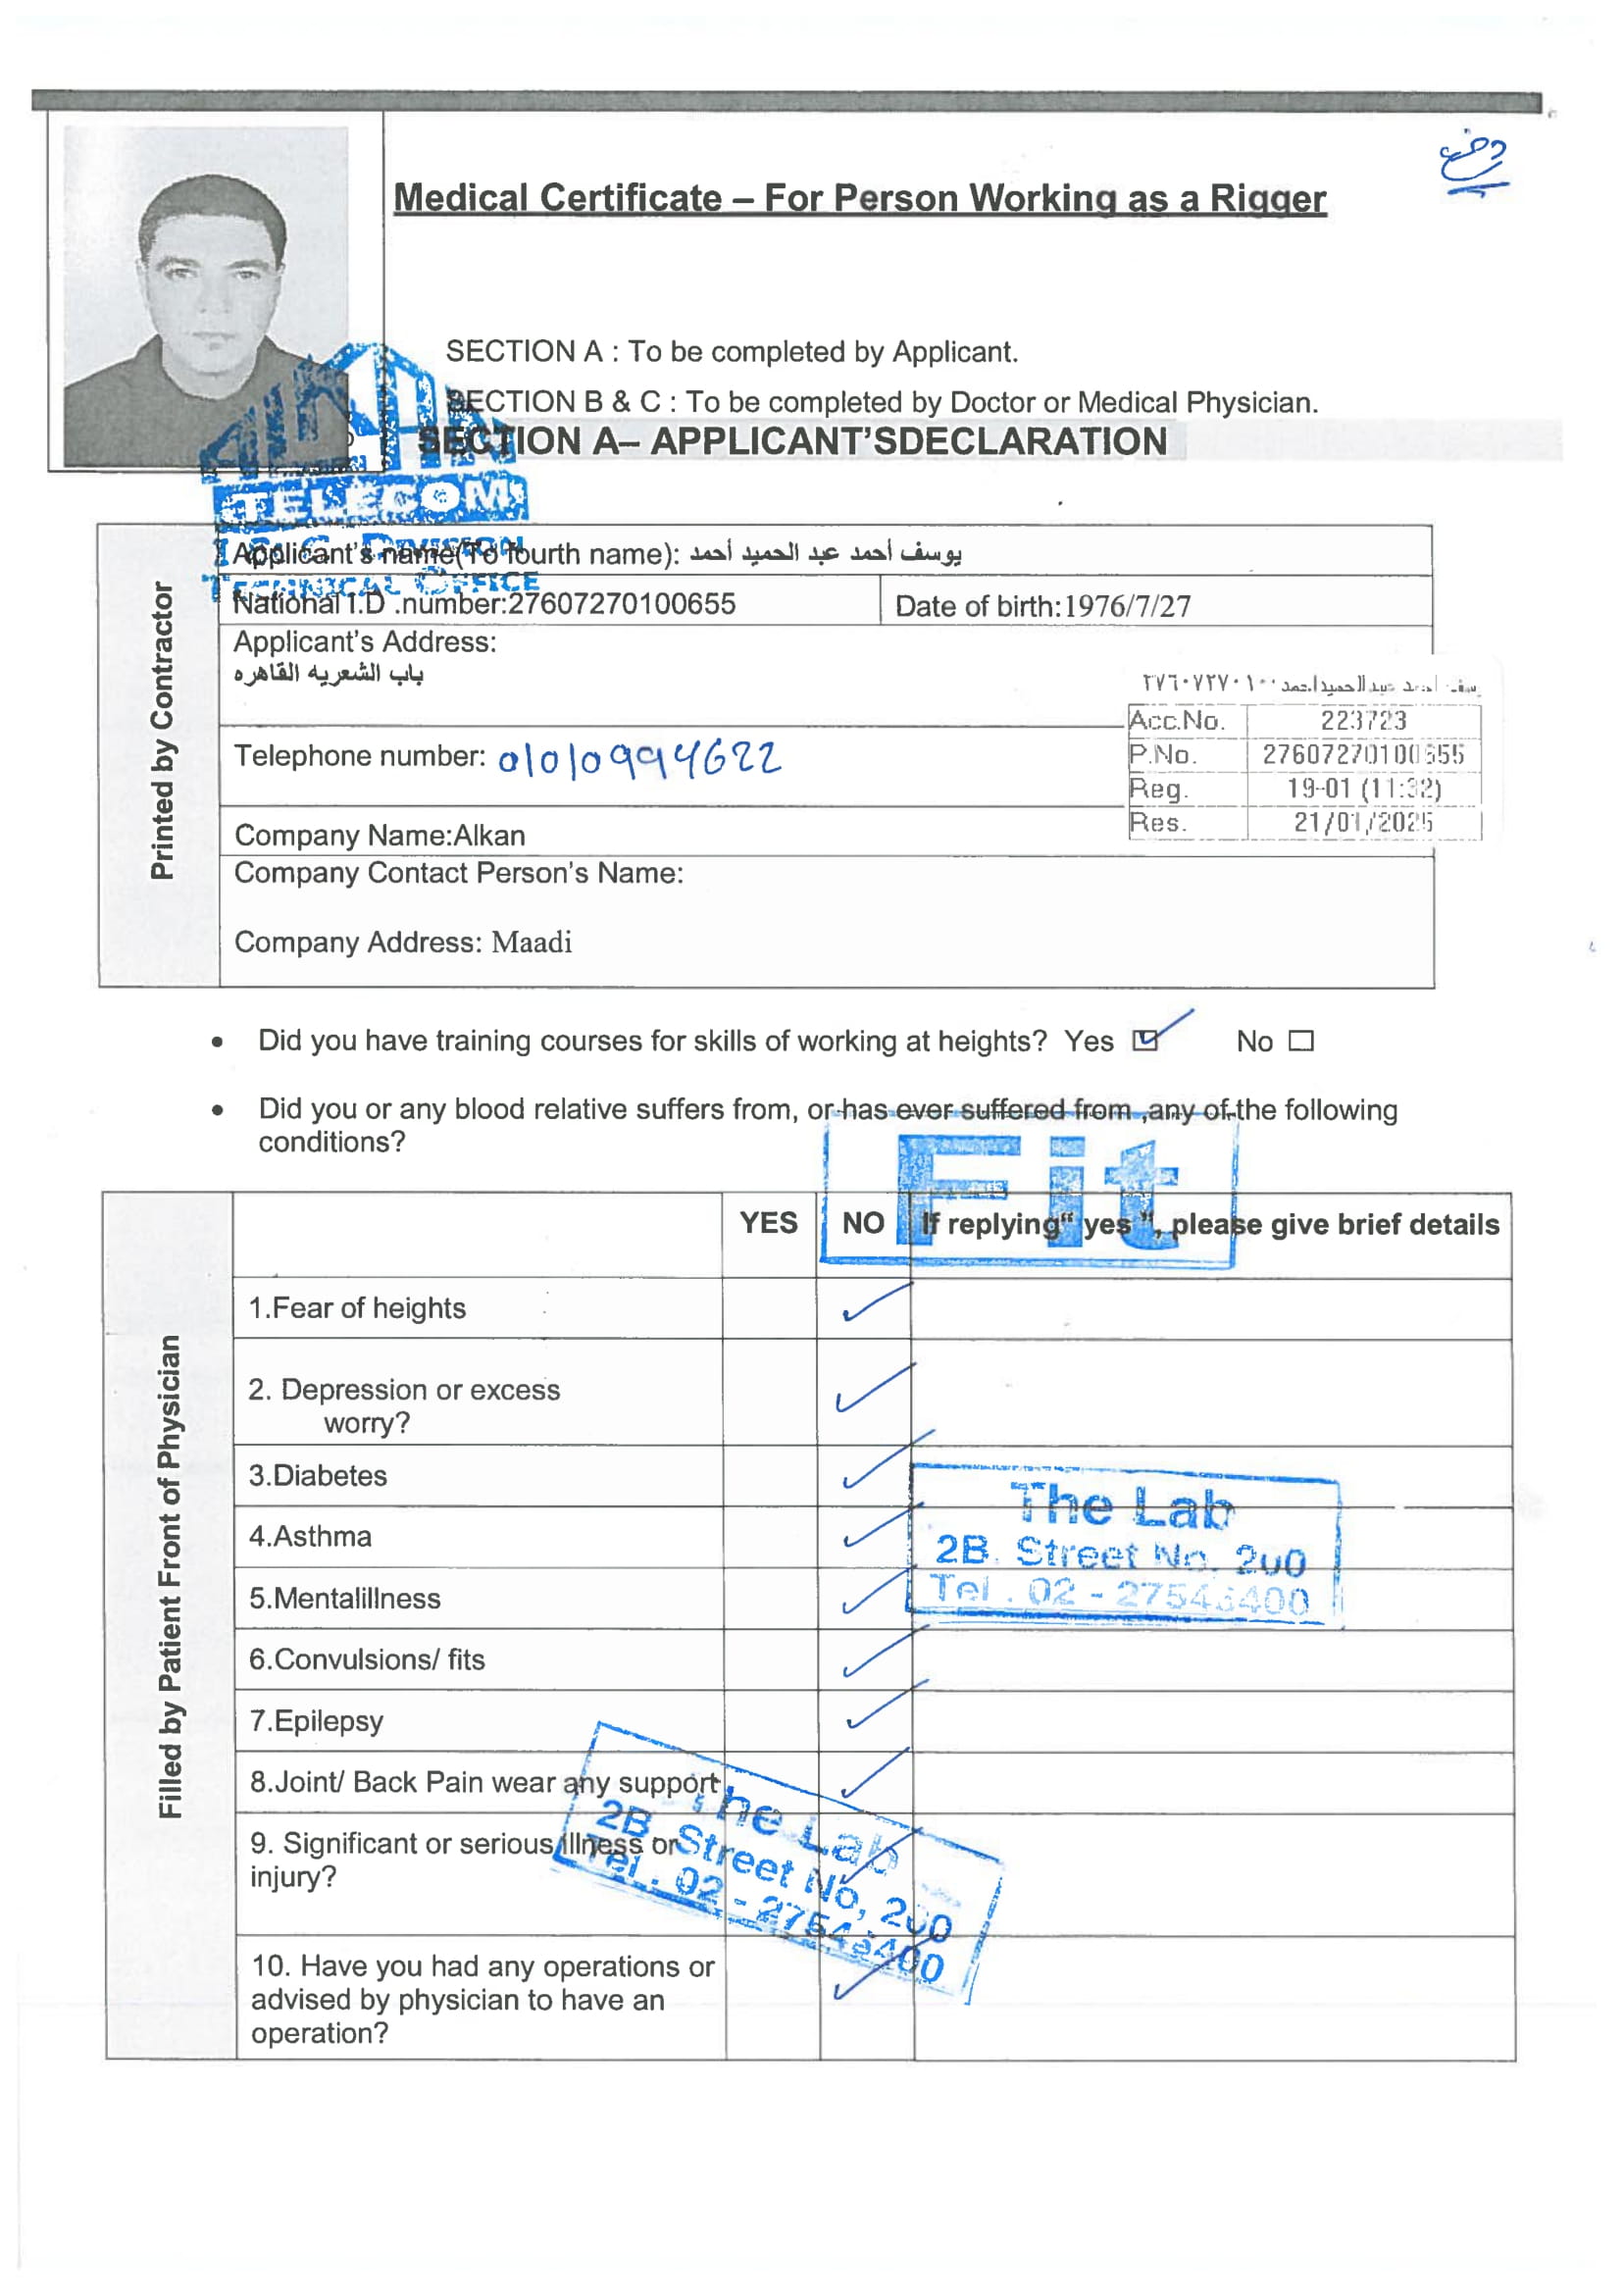 Medical Certificate – For Person Working as a Rigger
SECTION A : To be completed by Applicant.
SECTION B & C : To be completed by Doctor or Medical Physician.
SECTION A– APPLICANT'SDECLARATION
TELECOM
DIVISION
TECHNICAL OFFICE
Printed by Contractor
Applicant's name(To fourth name): يوسف أحمد عبد الحميد أحمد
National I.D .number:27607270100655
Date of birth:1976/7/27
Applicant's Address:
باب الشعريه القاهره
Telephone number: 01010994622
Company Name:Alkan
Company Contact Person's Name:
Company Address: Maadi
احمد عبد الحميد احمد
Acc.No. 223723
P.No. 27607270100655
Reg. 19-01 (11:32)
Res. 21/01/2025
• Did you have training courses for skills of working at heights? Yes ☑ No ☐
• Did you or any blood relative suffers from, or has ever suffered from ,any of the following
conditions?
Fit
Filled by Patient Front of Physician
YES NO If replying“ yes ”, please give brief details
1.Fear of heights ✓
2. Depression or excess
worry? ✓
3.Diabetes ✓
4.Asthma ✓
5.Mentalillness ✓
6.Convulsions/ fits ✓
7.Epilepsy ✓
8.Joint/ Back Pain wear any support ✓
9. Significant or serious illness or
injury? ✓
10. Have you had any operations or
advised by physician to have an
operation? ✓
The Lab
2B. Street No. 200
Tel . 02 - 27543400
The Lab
2B Street No, 200
Tel . 02 - 27543400